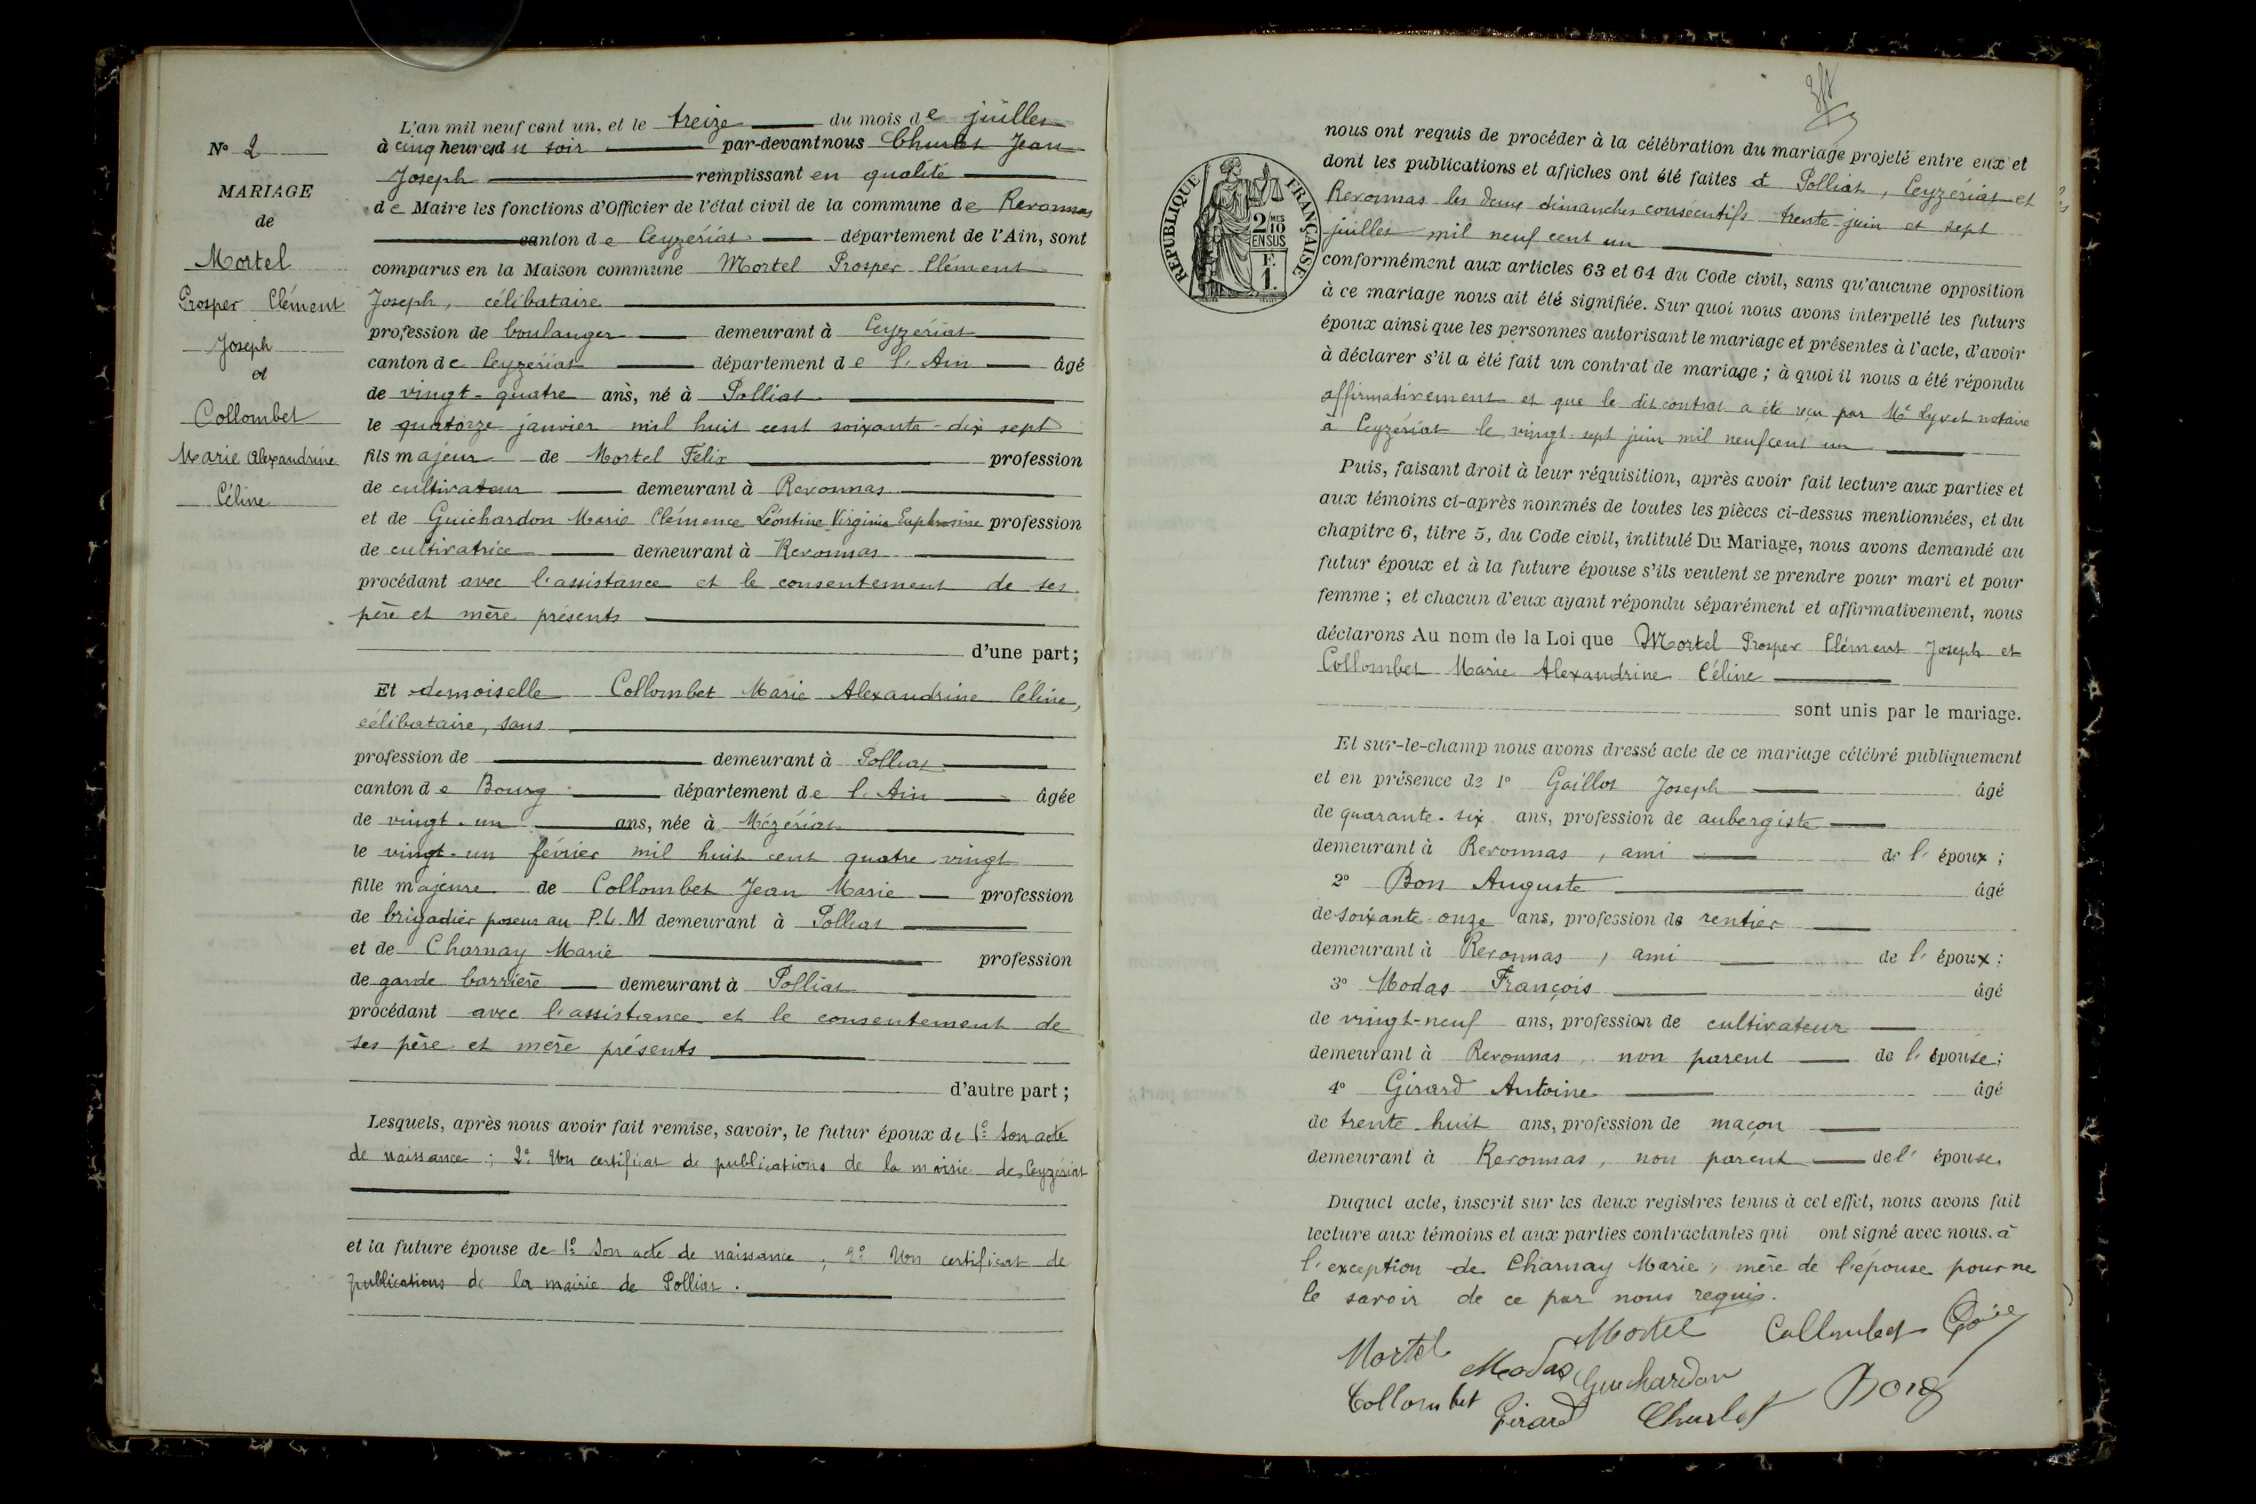 N° 2
MARIAGE
de
Mortel
Prosper Clément
Joseph
et
Collombet
Marie Alexandrine
Céline
L'an mil neuf cent un, et le treize du mois de juillet
à cinq heures du soir par-devant nous Churlet Jean
Joseph remplissant en qualité
de Maire les fonctions d'Officier de l'état civil de la commune de Revonnas
canton de Ceyzériat département de l'Ain, sont
comparus en la Maison commune Mortel Prosper Clément
Joseph, célibataire
profession de boulanger demeurant à Ceyzériat
canton de Ceyzériat département de l'Ain âgé
de vingt-quatre ans, né à Polliat
le quatorze janvier mil huit cent soixante-dix sept
fils majeur de Mortel Félix profession
de cultivateur demeurant à Revonnas
et de Guichardon Marie Clémence Léontine Virginie Euphrosine profession
de cultivatrice demeurant à Revonnas
procédant avec l'assistance et le consentement de ses
père et mère présents
d'une part;
Et demoiselle Collombet Marie Alexandrine Céline,
célibataire, sans
profession de demeurant à Polliat
canton de Bourg département de l'Ain âgée
de vingt-un ans, née à Mézériat
le vingt-un février mil huit cent quatre-vingt
fille majeure de Collombet Jean Marie profession
de brigadier poseur au P.L.M demeurant à Polliat
et de Charnay Marie profession
de garde barrière demeurant à Polliat
procédant avec l'assistance et le consentement de
ses père et mère présents
d'autre part;
Lesquels, après nous avoir fait remise, savoir, le futur époux de 1° Son acte
de naissance; 2° Un certificat de publications de la mairie de Ceyzériat
et la future épouse de 1° Son acte de naissance; 2° Un certificat de
publications de la mairie de Polliat.
RÉPUBLIQUE FRANÇAISE
2/10
MES
EN SUS
F.
1.
nous ont requis de procéder à la célébration du mariage projeté entre eux et
dont les publications et affiches ont été faites à Polliat, Ceyzériat et
Revonnas les deux dimanches consécutifs trente juin et sept
juillet mil neuf cent un
conformément aux articles 63 et 64 du Code civil, sans qu'aucune opposition
à ce mariage nous ait été signifiée. Sur quoi nous avons interpellé les futurs
époux ainsi que les personnes autorisant le mariage et présentes à l'acte, d'avoir
à déclarer s'il a été fait un contrat de mariage; à quoi il nous a été répondu
affirmativement et que le dit contrat a été reçu par Me Lyvet notaire
à Ceyzériat le vingt-sept juin mil neuf cent un
Puis, faisant droit à leur réquisition, après avoir fait lecture aux parties et
aux témoins ci-après nommés de toutes les pièces ci-dessus mentionnées, et du
chapitre 6, titre 5, du Code civil, intitulé Du Mariage, nous avons demandé au
futur époux et à la future épouse s'ils veulent se prendre pour mari et pour
femme; et chacun d'eux ayant répondu séparément et affirmativement, nous
déclarons Au nom de la Loi que Mortel Prosper Clément Joseph et
Collombet Marie Alexandrine Céline
sont unis par le mariage.
Et sur-le-champ nous avons dressé acte de ce mariage célébré publiquement
et en présence de 1° Gaillot Joseph âgé
de quarante-six ans, profession de aubergiste
demeurant à Revonnas, ami de l'époux;
2° Bon Auguste âgé
de soixante-onze ans, profession de rentier
demeurant à Revonnas, ami de l'époux;
3° Modas François âgé
de vingt-neuf ans, profession de cultivateur
demeurant à Revonnas, non parent de l'épouse;
4° Girard Antoine âgé
de trente-huit ans, profession de maçon
demeurant à Revonnas, non parent de l'épouse.
Duquel acte, inscrit sur les deux registres tenus à cet effet, nous avons fait
lecture aux témoins et aux parties contractantes qui ont signé avec nous. à
l'exception de Charnay Marie, mère de l'épouse pour ne
le savoir de ce par nous requis.
Mortel Mortel Collombet
Modas Guichardon Bon
Collombet Girard Churlet